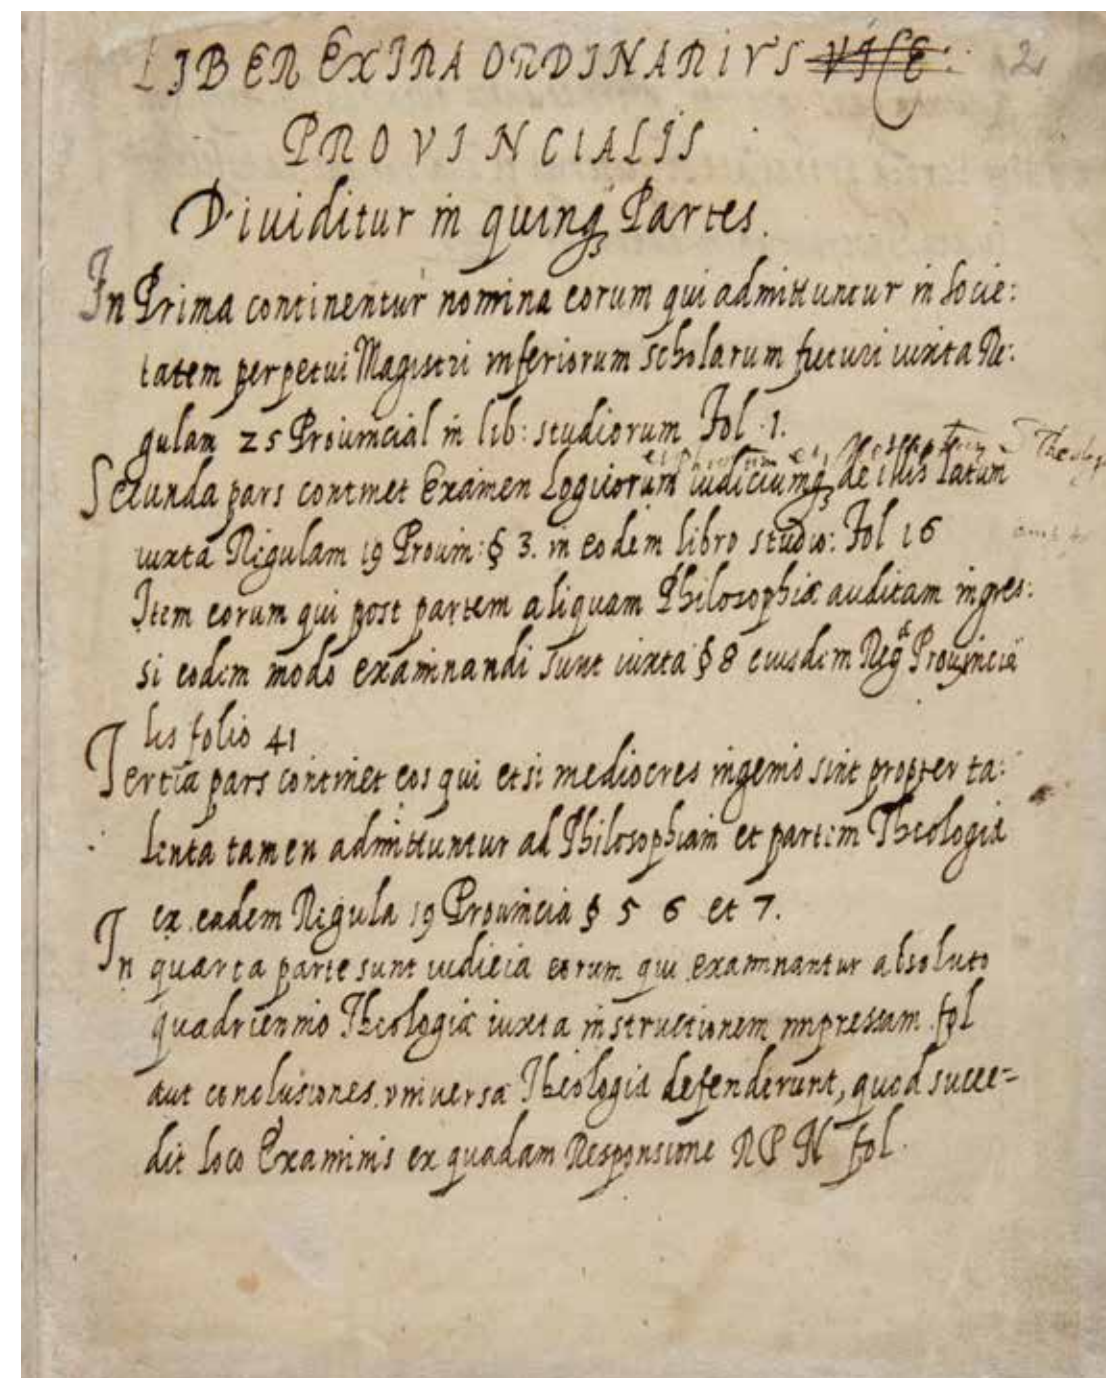 LIBER EXTRA ORDINARIVS VICE: 2
PROVINCIALIS
Diuiditur in quinq Partes.
In Prima continentur nomina eorum qui admittuntur in Socie:
tatem perpetui Magistri inferiorum scholarum futuri iuxta Re:
gulam 25 Prouincial in lib: studiorum Fol. 1.
et Theolog
Secunda pars continet Examen Logicorum iudiciumq de illis latum
iuxta Regulam 19 Prouin: § 3. in eodem libro studio: Fol 16
Item eorum qui post partem aliquam Philosophiæ auditam ingres:
si eodem modo examinandi sunt iuxta § 8 eiusdem Reg Prouincia
lis folio 41
Tertia pars continet eos qui etsi mediocres ingenio sint propter ta:
lenta tamen admittuntur ad Philosophiam et partem Theologiæ
ex eadem Regula 19 Prouincia § 5 6 et 7.
In quarta parte sunt iudicia eorum qui examinantur absoluto
quadriennio Theologiæ iuxta instructionem impressam fol
aut conclusiones vniuersæ Theologiæ defenderunt, quod succe-
dit loco Examinis ex quadam Responsione R P N fol.